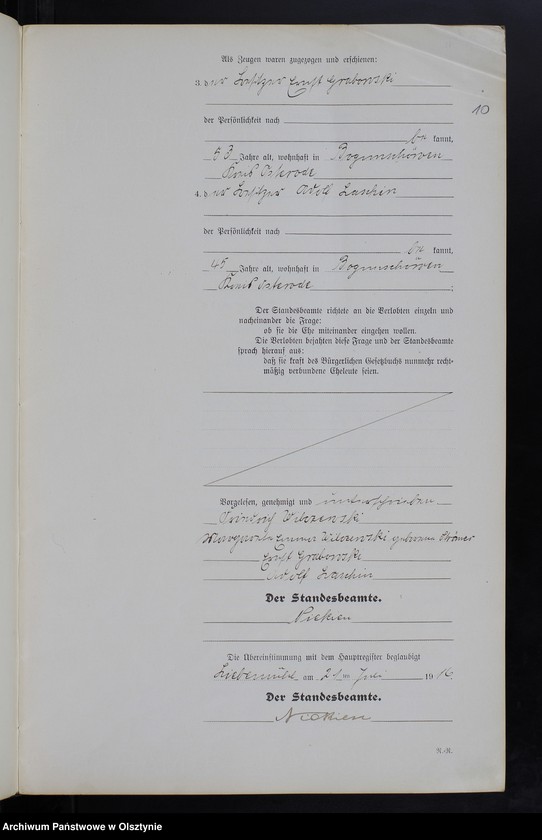 Als Zeugen waren zugezogen und erschienen:
3. der Besitzer Ernst Grabowski
10
der Persönlichkeit nach
be kannt,
53 Jahre alt, wohnhaft in Bogunschöwen
Kreis Osterode
4. der Besitzer Adolf Laschin
der Persönlichkeit nach
be kannt,
45 Jahre alt, wohnhaft in Bogunschöwen
Kreis Osterode ;
Der Standesbeamte richtete an die Verlobten einzeln und
nacheinander die Frage:
ob sie die Ehe miteinander eingehen wollen.
Die Verlobten bejahten diese Frage und der Standesbeamte
sprach hierauf aus:
daß sie kraft des Bürgerlichen Gesetzbuchs nunmehr recht-
mäßig verbundene Eheleute seien.
Vorgelesen, genehmigt und unterschrieben
Friedrich Wilczewski
Emma Wilczewski geborene
Ernst Grabowski
Adolf Laschin
Der Standesbeamte.
Die Übereinstimmung mit dem Hauptregister beglaubigt
Liebemühl am 21ten Juli 1916.
Der Standesbeamte.
R.-R.
Archiwum Państwowe w Olsztynie